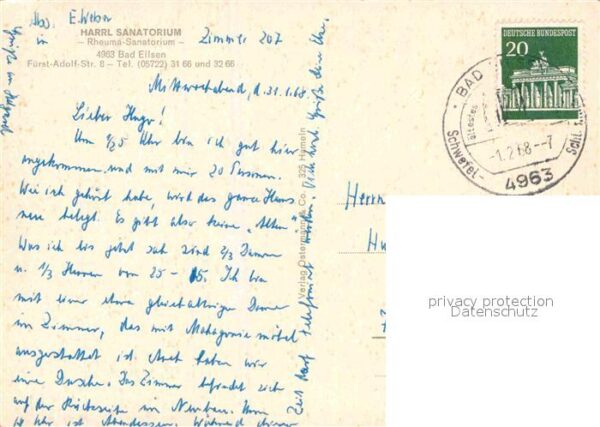 Abs. E. Weber
in
HARRL SANATORIUM
– Rheuma-Sanatorium –
4963 Bad Eilsen
Fürst-Adolf-Str. 8 – Tel. (05722) 31 66 und 32 66
Zimmer 207
Mittwochabend, d. 31.1.68.
Lieber Hugo!
Um 1/25 Uhr bin ich gut hier
angekommen und mit mir 20 Personen.
Wie ich gehört habe, wird das ganze Haus
neu belegt. Es gibt also keine „Alten“.
Was ich bis jetzt sah sind 2/3 Damen
u. 1/3 Herren von 25 – 65. Ich bin
mit einer etwa gleichaltrigen Dame
im Zimmer, das mit Mahagonie möbel
ausgestattet ist. Auch haben wir
eine Dusche. Das Zimmer befindet sich
auf der Rückseite im Neubau. Um
18 Uhr ist Abendessen. Während dieser
Zeit darf telefoniert werden. Dich Grüße deine
Grüße an
Verlag Ostermann & Co. 325 Hameln
DEUTSCHE BUNDESPOST
20
BAD
ältestes
Schwefel-
Schl
-1.2.68.--7
4963
Herrn
Hu
privacy protection
Datenschutz